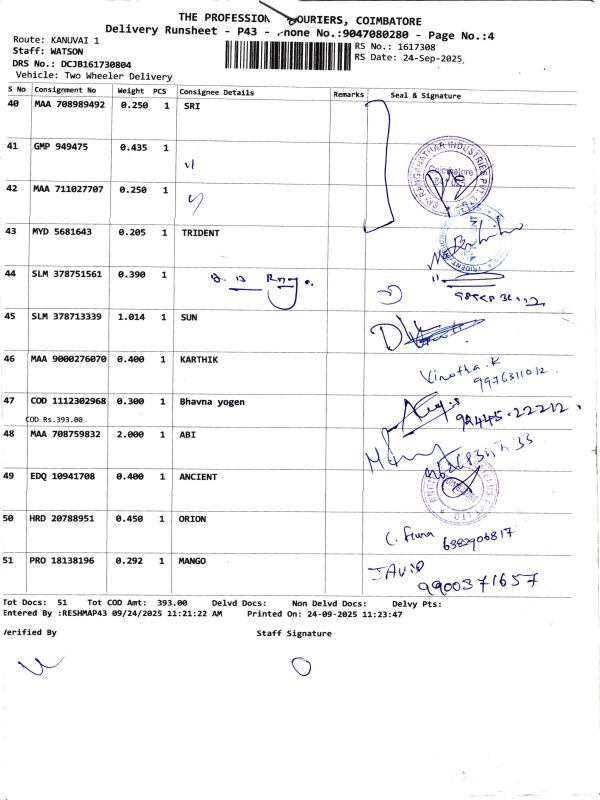 THE PROFESSION COURIERS, COIMBATORE
Delivery Runsheet - P43 - Phone No.:9047080280 - Page No.:4
Route: KANUVAI 1
RS No.: 1617308
Staff: WATSON
RS Date: 24-Sep-2025
DRS No.: DCJB161730804
Vehicle: Two Wheeler Delivery
S No Consignment No Weight PCS Consignee Details Remarks Seal & Signature
40 MAA 708989492 0.250 1 SRI
41 GMP 949475 0.435 1 "
42 MAA 711027707 0.250 1 "
SRI RANGANATHAR INDUSTRIES PVT. LTD.
Coimbatore
43 MYD 5681643 0.205 1 TRIDENT
44 SLM 378751561 0.390 1
45 SLM 378713339 1.014 1 SUN
46 MAA 9000276070 0.400 1 KARTHIK
Vinotha.R
9976311012.
47 COD 1112302968 0.300 1 Bhavna yogen
COD Rs.393.00
92445-22212.
48 MAA 708759832 2.000 1 ABI
49 EDQ 10941708 0.400 1 ANCIENT
50 HRD 20788951 0.450 1 ORION
6382906817
51 PRO 18138196 0.292 1 MANGO
JAVID
9900371657
Tot Docs: 51 Tot COD Amt: 393.00 Delvd Docs: Non Delvd Docs: Delvy Pts:
Entered By :RESHMAP43 09/24/2025 11:21:22 AM Printed On: 24-09-2025 11:23:47
Verified By Staff Signature